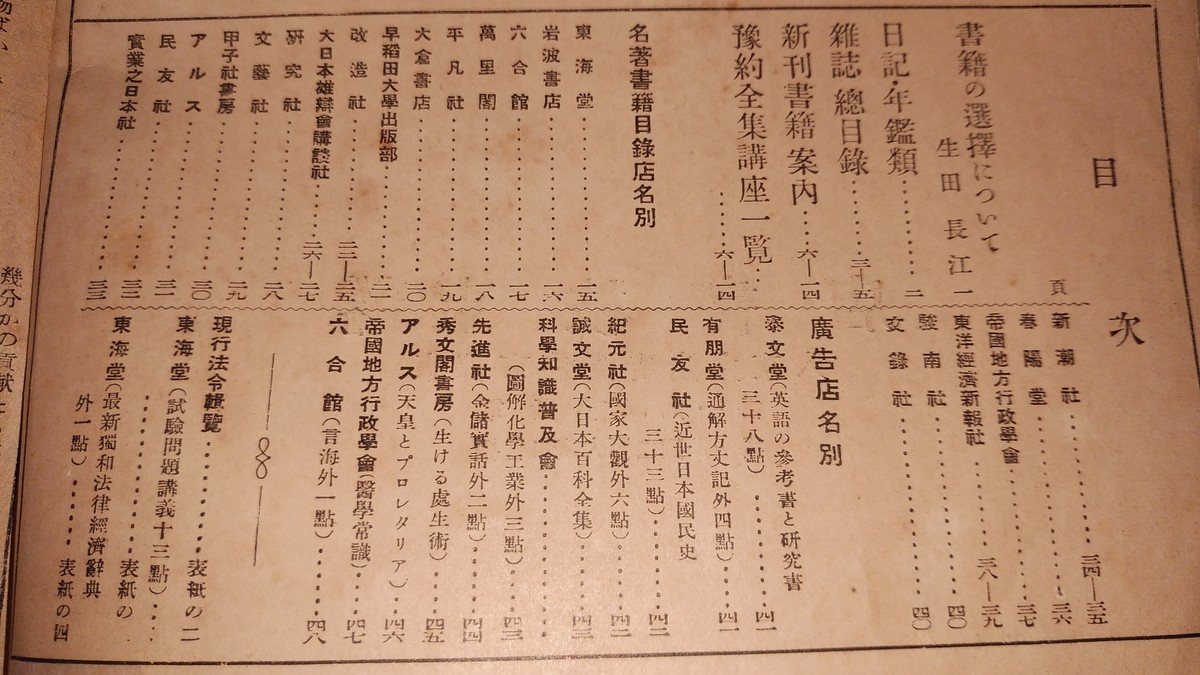 目次
頁
書籍の選擇について
生田長江 一
日記・年鑑類………二
雜誌總目錄………三—五
新刊書籍案内………六—一四
豫約全集講座一覽………六—一四
名著書籍目錄店名別
東海堂………一五
岩波書店………一六
六合館………一七
萬里閣………一八
平凡社………一九
大倉書店………二〇
早稻田大學出版部………二一
改造社………二二—二五
大日本雄辯會講談社………二六—二七
硏究社………二八
文藝社………二九
甲子社書房
アルス………三〇
民友社………三一
實業之日本社………三三
新潮社………三四—三五
春陽堂………三六
帝國地方行政學會………三七
東洋經濟新報社………三八—三九
駿南社………四〇
文錄社………四〇
廣告店名別
泰文堂(英語の參考書と硏究書
三十八點)………四一
有朋堂(通解方丈記外四點)………四一
民友社(近世日本國民史
三十三點)………四二
紀元社(國家大觀外六點)………四二
誠文堂(大日本百科全集)………四三
科學知識普及會
(圖解化學工業外三點)………四三
先進社(金儲實話外二點)………四四
秀文閣書房(生ける處生術)………四五
アルス(天皇とプロレタリア)………四六
帝國地方行政學會(醫學常識)………四七
六合館(言海外一點)………四八
現行法令輯覽………表紙の二
東海堂(試驗問題講義十三點)
………表紙の
東海堂(最新獨和法律經濟辭典
外一點)………表紙の四
幾分かの貢獻